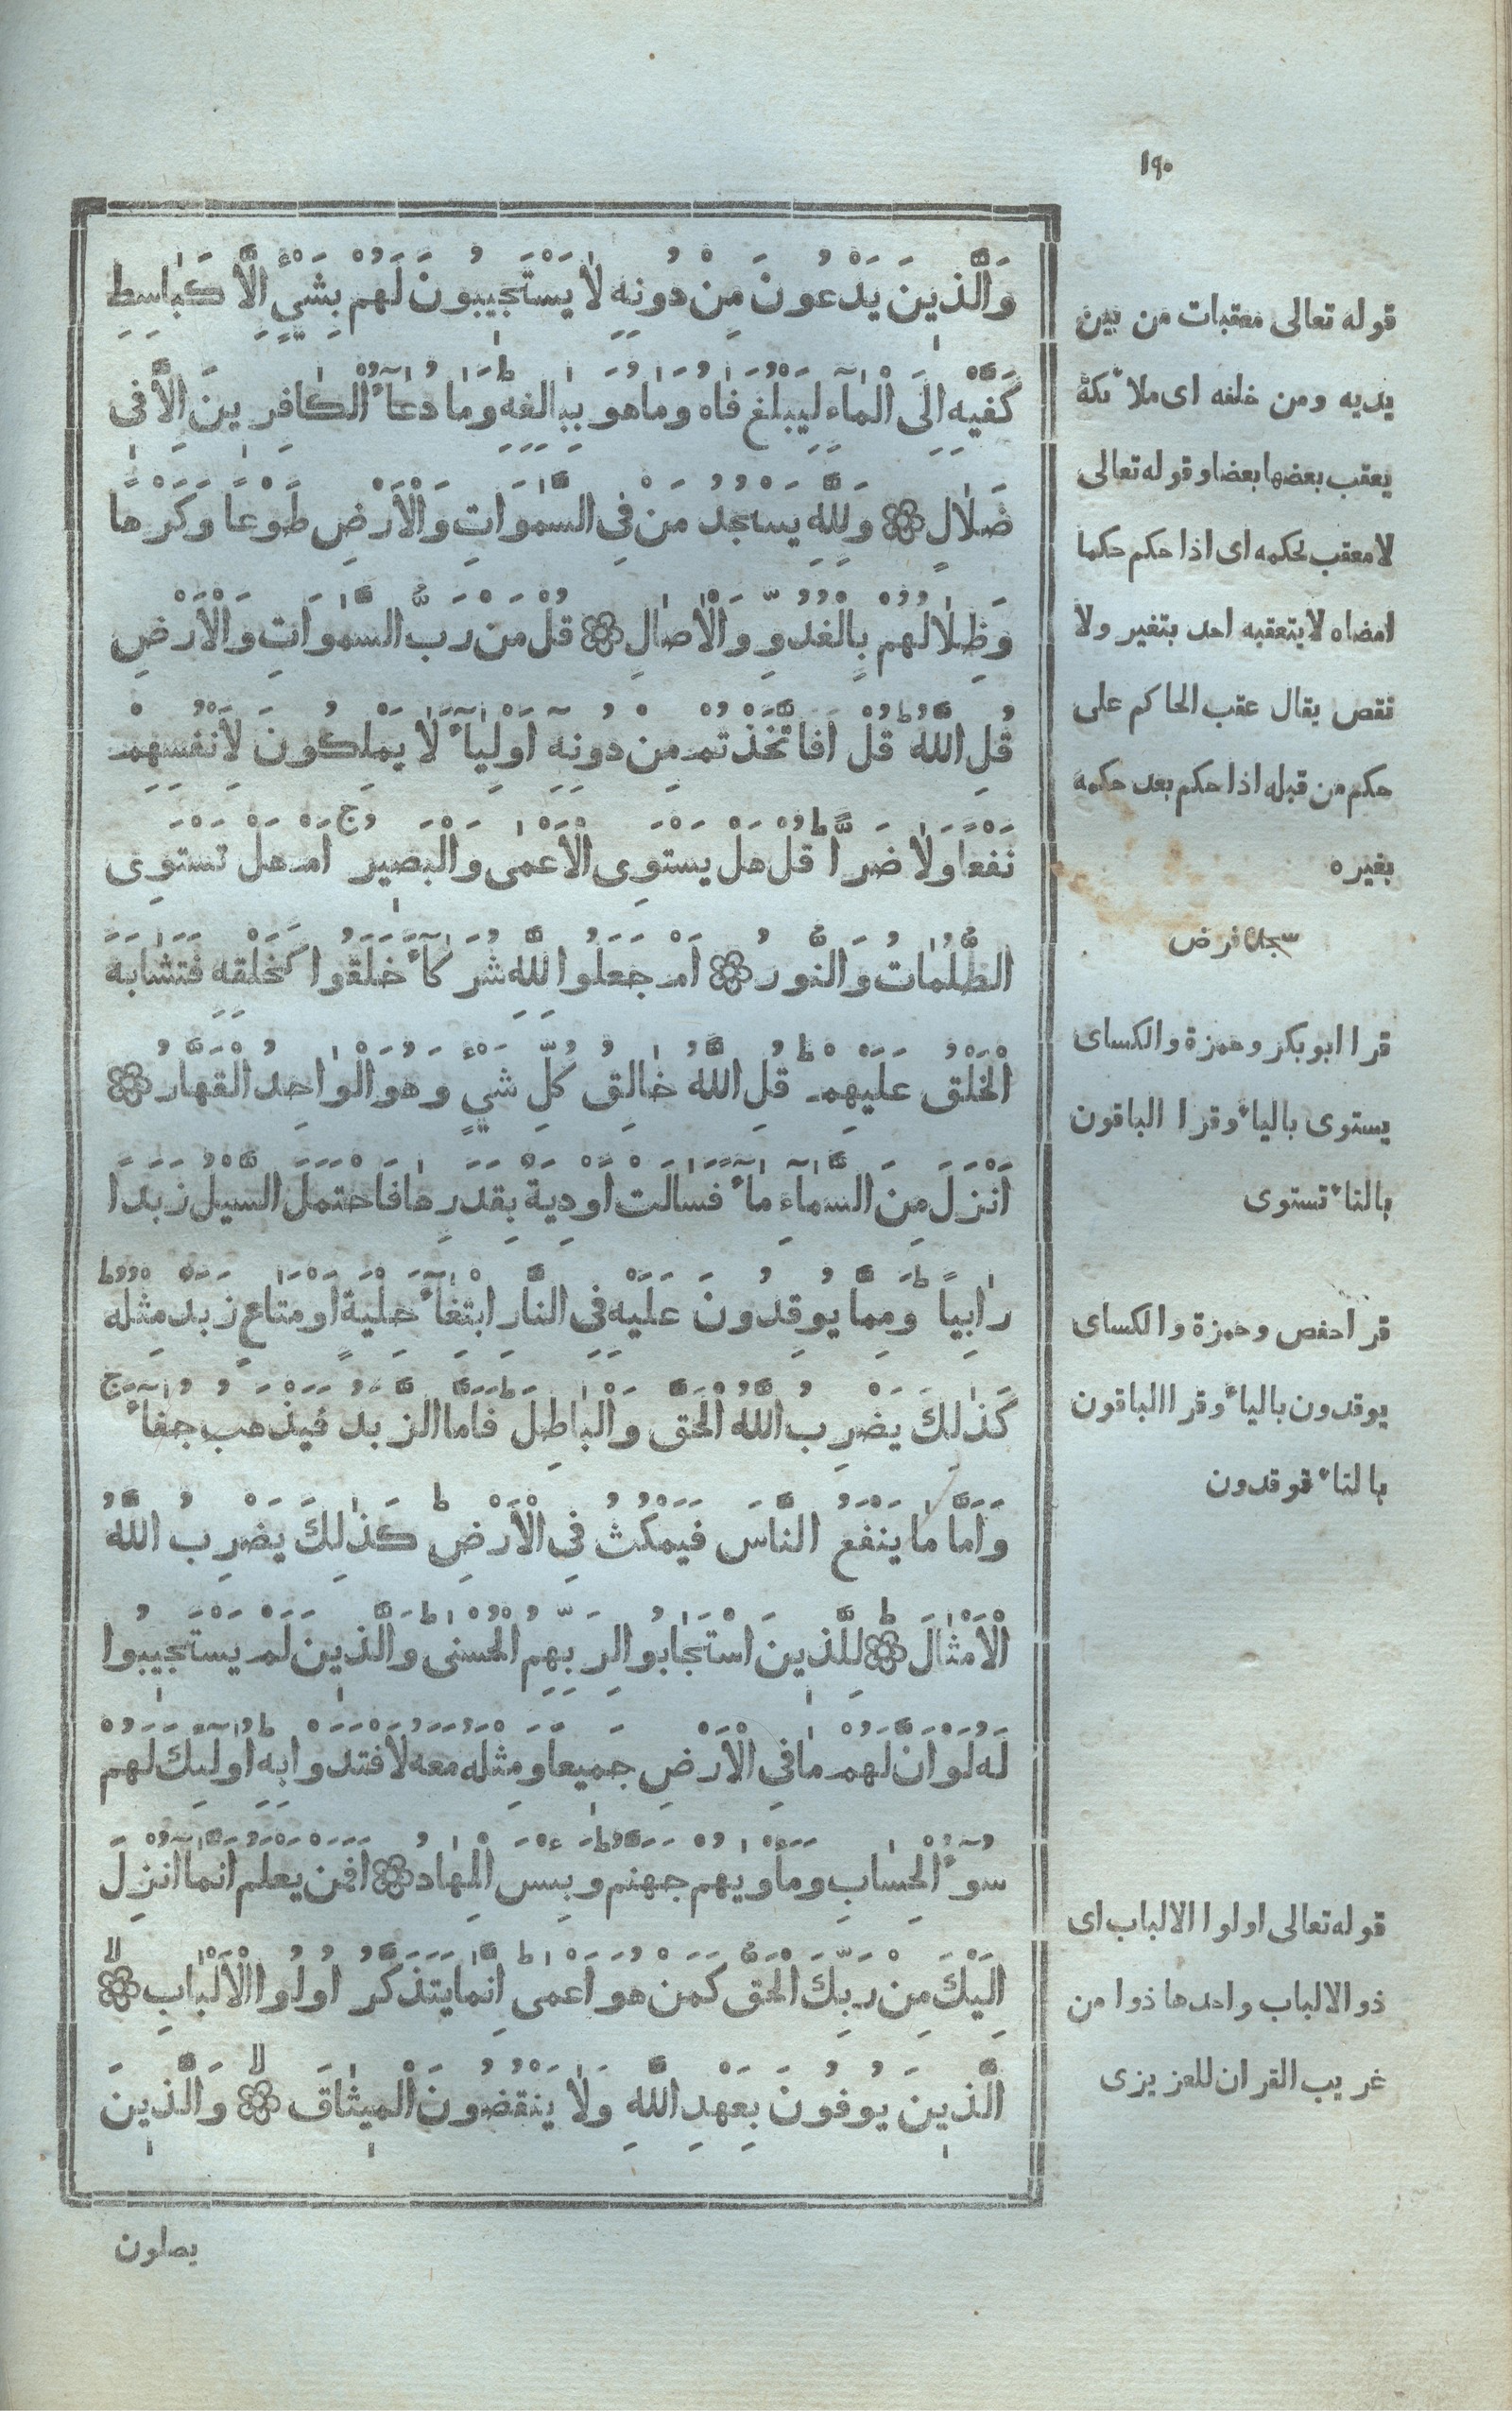 ١٩٠
وَالَّذِينَ يَدْعُونَ مِنْ دُونِهِ لَا يَسْتَجِيبُونَ لَهُمْ بِشَيْءٍ إِلَّا كَبَاسِطِ
كَفَّيْهِ إِلَى الْمَاءِ لِيَبْلُغَ فَاهُ وَمَا هُوَ بِبَالِغِهِ ط وَمَا دُعَاءُ الْكَافِرِينَ إِلَّا فِي
ضَلَالٍ وَلِلَّهِ يَسْجُدُ مَنْ فِي السَّمٰوَاتِ وَالْأَرْضِ طَوْعًا وَكَرْهًا
وَظِلَالُهُمْ بِالْغُدُوِّ وَالْآصَالِ قُلْ مَنْ رَبُّ السَّمٰوَاتِ وَالْأَرْضِ
قُلِ اللَّهُ ط قُلْ أَفَاتَّخَذْتُمْ مِنْ دُونِهِ أَوْلِيَاءَ لَا يَمْلِكُونَ لِأَنْفُسِهِمْ
نَفْعًا وَلَا ضَرًّا ط قُلْ هَلْ يَسْتَوِي الْأَعْمَى وَالْبَصِيرُ ج أَمْ هَلْ تَسْتَوِي
الظُّلُمَاتُ وَالنُّورُ أَمْ جَعَلُوا لِلَّهِ شُرَكَاءَ خَلَقُوا كَخَلْقِهِ فَتَشَابَهَ
الْخَلْقُ عَلَيْهِمْ ط قُلِ اللَّهُ خَالِقُ كُلِّ شَيْءٍ وَهُوَ الْوَاحِدُ الْقَهَّارُ
أَنْزَلَ مِنَ السَّمَاءِ مَاءً فَسَالَتْ أَوْدِيَةٌ بِقَدَرِهَا فَاحْتَمَلَ السَّيْلُ زَبَدًا
رَابِيًا ط وَمِمَّا يُوقِدُونَ عَلَيْهِ فِي النَّارِ ابْتِغَاءَ حِلْيَةٍ أَوْ مَتَاعٍ زَبَدٌ مِثْلُهُ ط
كَذٰلِكَ يَضْرِبُ اللَّهُ الْحَقَّ وَالْبَاطِلَ ط فَأَمَّا الزَّبَدُ فَيَذْهَبُ جُفَاءً ج
وَأَمَّا مَا يَنْفَعُ النَّاسَ فَيَمْكُثُ فِي الْأَرْضِ ط كَذٰلِكَ يَضْرِبُ اللَّهُ
الْأَمْثَالَ ط لِلَّذِينَ اسْتَجَابُوا لِرَبِّهِمُ الْحُسْنَى ط وَالَّذِينَ لَمْ يَسْتَجِيبُوا
لَهُ لَوْ أَنَّ لَهُمْ مَا فِي الْأَرْضِ جَمِيعًا وَمِثْلَهُ مَعَهُ لَافْتَدَوْا بِهِ ط أُولٰئِكَ لَهُمْ
سُوءُ الْحِسَابِ وَمَأْوٰيهُمْ جَهَنَّمُ ط وَبِئْسَ الْمِهَادُ أَفَمَنْ يَعْلَمُ أَنَّمَا أُنْزِلَ
إِلَيْكَ مِنْ رَبِّكَ الْحَقُّ كَمَنْ هُوَ أَعْمَى ط إِنَّمَا يَتَذَكَّرُ أُولُوا الْأَلْبَابِ لا
الَّذِينَ يُوفُونَ بِعَهْدِ اللَّهِ وَلَا يَنْقُضُونَ الْمِيثَاقَ لا وَالَّذِينَ
يصلون
قوله تعالى معقبات من بين
يديه ومن خلفه اى ملائكة
يعقب بعضها بعضا وقوله تعالى
لا معقب لحكمه اى اذا حكم حكما
امضاه لا يتعقبه احد بتغير ولا
نقص يقال عقب الحاكم على
حكم من قبله اذا حكم بعد حكمه
بغيره
سجدة فرض
قرا ابو بكر وحمزة والكساى
يستوى بالياء وقرا الباقون
بالتاء تستوى
قرا حفص وحمزة والكساى
يوقدون بالياء وقرا الباقون
بالتاء توقدون
قوله تعالى اولوا الالباب اى
ذو الالباب واحدها ذوا من
غريب القران للعزيزى